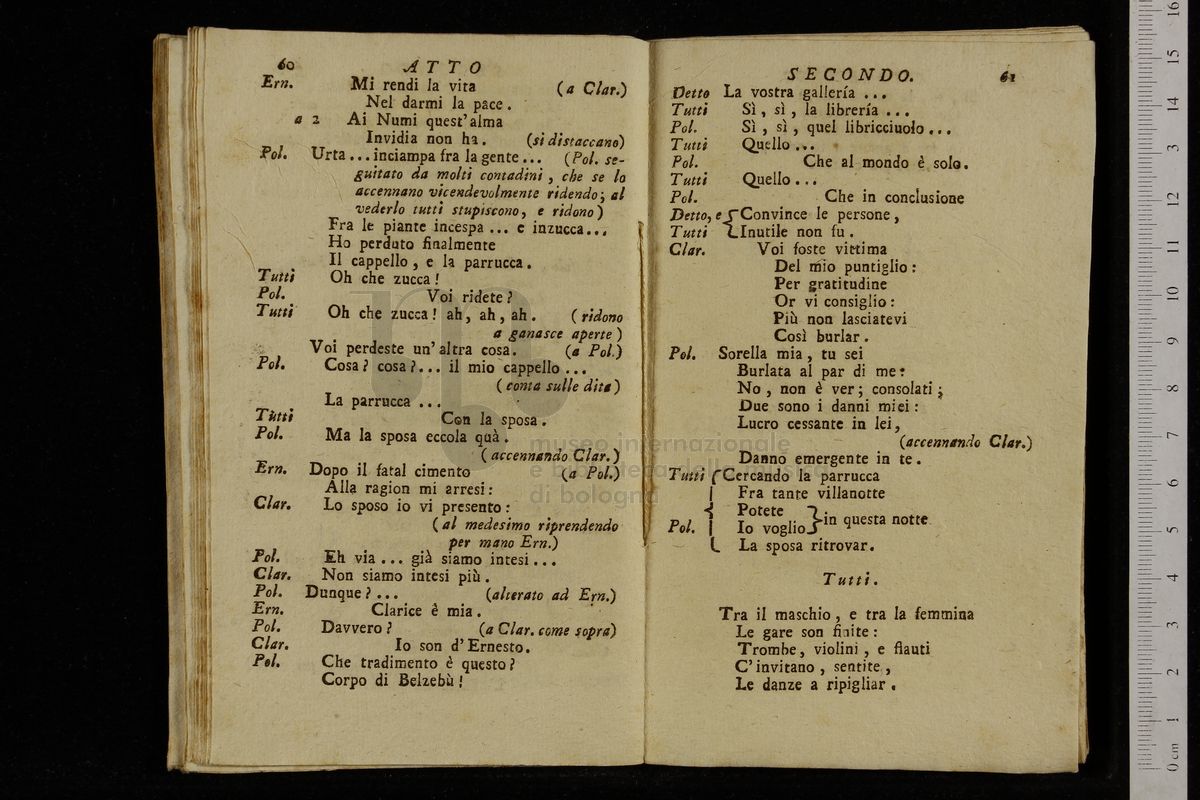 60 ATTO
Ern. Mi rendi la vita (a Clar.)
Nel darmi la pace.
a 2 Ai Numi quest'alma
Invidia non ha. (si distaccano)
Pol. Urta... inciampa fra la gente... (Pol. se-
guitato da molti contadini, che se lo
accennano vicendevolmente ridendo; al
vederlo tutti stupiscono, e ridono)
Fra le piante incespa... e inzucca...
Ho perduto finalmente
Il cappello, e la parrucca.
Tutti Oh che zucca!
Pol. Voi ridete?
Tutti Oh che zucca! ah, ah, ah. (ridono
a ganasce aperte)
Voi perdeste un'altra cosa. (a Pol.)
Pol. Cosa? cosa?... il mio cappello...
(conta sulle dita)
La parrucca...
Tutti Con la sposa.
Pol. Ma la sposa eccola quà.
(accennando Clar.)
Ern. Dopo il fatal cimento (a Pol.)
Alla ragion mi arresi:
Clar. Lo sposo io vi presento:
(al medesimo riprendendo
per mano Ern.)
Pol. Eh via... già siamo intesi...
Clar. Non siamo intesi più.
Pol. Dunque?... (alterato ad Ern.)
Ern. Clarice è mia.
Pol. Davvero? (a Clar. come sopra)
Clar. Io son d'Ernesto.
Pol. Che tradimento è questo?
Corpo di Belzebù!
SECONDO. 61
Detto La vostra gallería...
Tutti Sì, sì, la librería...
Pol. Sì, sì, quel libricciuolo...
Tutti Quello...
Pol. Che al mondo è solo.
Tutti Quello...
Pol. Che in conclusione
Detto, e Convince le persone,
Tutti Inutile non fu.
Clar. Voi foste vittima
Del mio puntiglio:
Per gratitudine
Or vi consiglio:
Più non lasciatevi
Così burlar.
Pol. Sorella mia, tu sei
Burlata al par di me:
No, non è ver; consolati;
Due sono i danni miei:
Lucro cessante in lei,
(accennando Clar.)
Danno emergente in te.
Tutti Cercando la parrucca
Fra tante villanotte
Potete
Pol. Io voglio in questa notte
La sposa ritrovar.
Tutti.
Tra il maschio, e tra la femmina
Le gare son finite:
Trombe, violini, e flauti
C'invitano, sentite,
Le danze a ripigliar.
museo internazionale
e biblioteca della musica
di bologna
0 cm 1 2 3 4 5 6 7 8 9 10 11 12 13 14 15 16